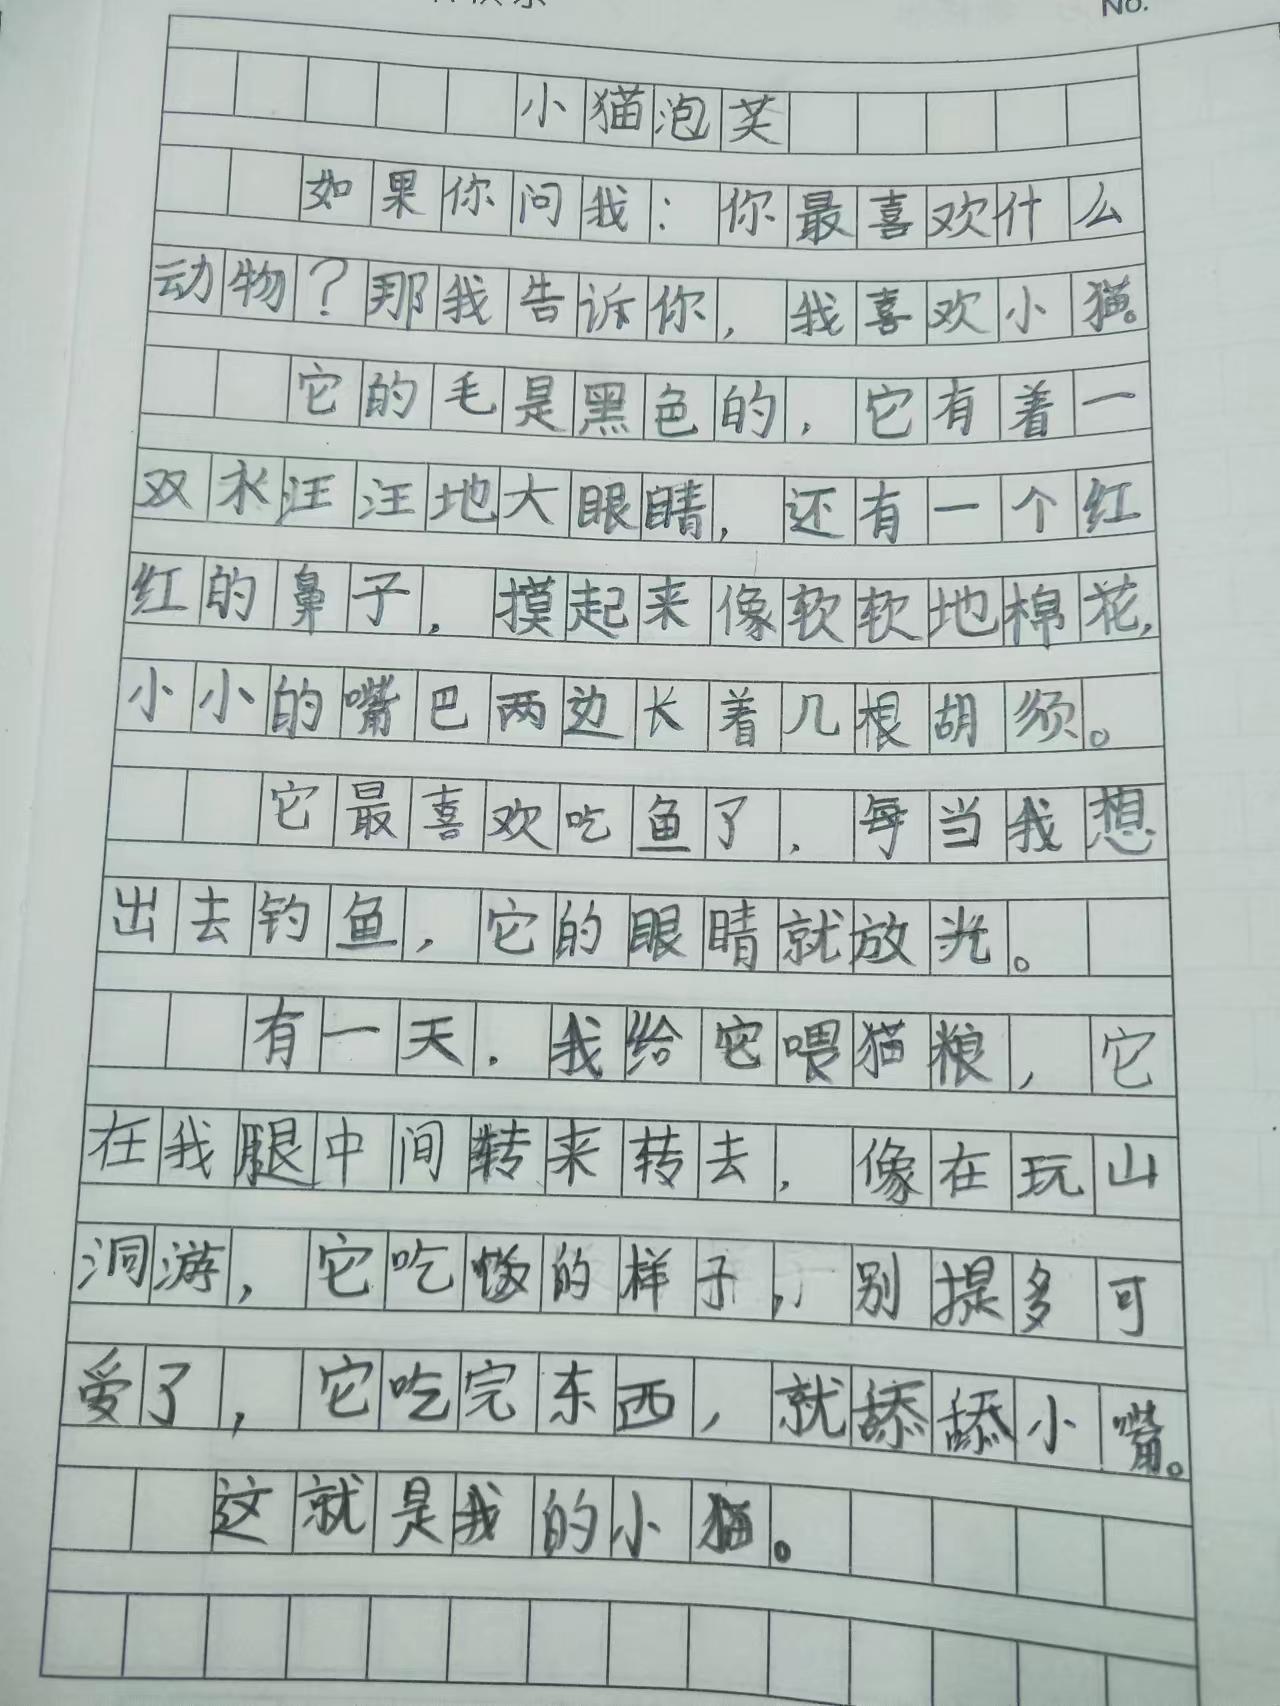 No.
小猫泡芙
如果你问我：你最喜欢什么
动物？那我告诉你，我喜欢小猫。
它的毛是黑色的，它有着一
双水汪汪地大眼睛，还有一个红
红的鼻子，摸起来像软软地棉花，
小小的嘴巴两边长着几根胡须。
它最喜欢吃鱼了，每当我想
出去钓鱼，它的眼睛就放光。
有一天，我给它喂猫粮，它
在我腿中间转来转去，像在玩山
洞游，它吃饭的样子，别提多可
爱了，它吃完东西，就舔舔小嘴。
这就是我的小猫。